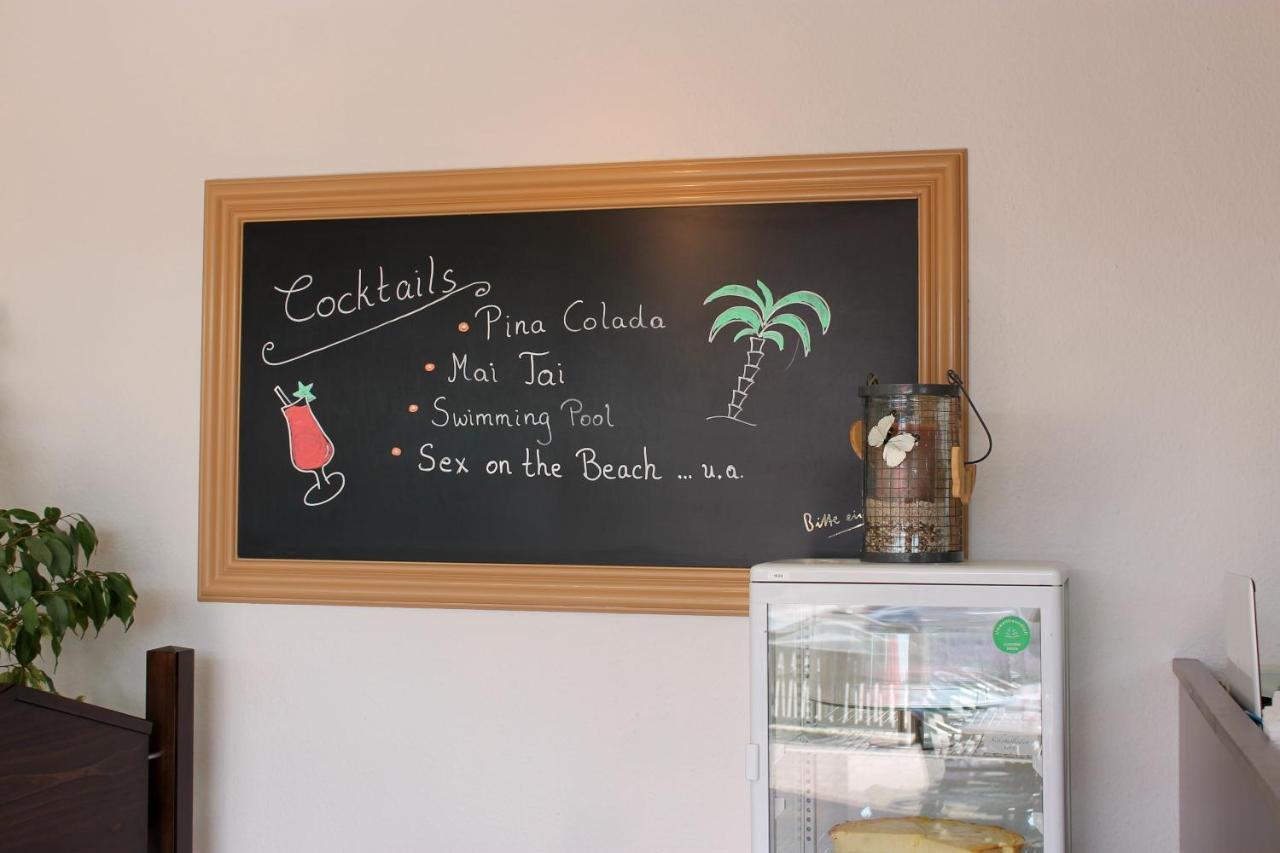 Cocktails
Pina Colada
Mai Tai
Swimming Pool
Sex on the Beach ... u.a.
Bitte